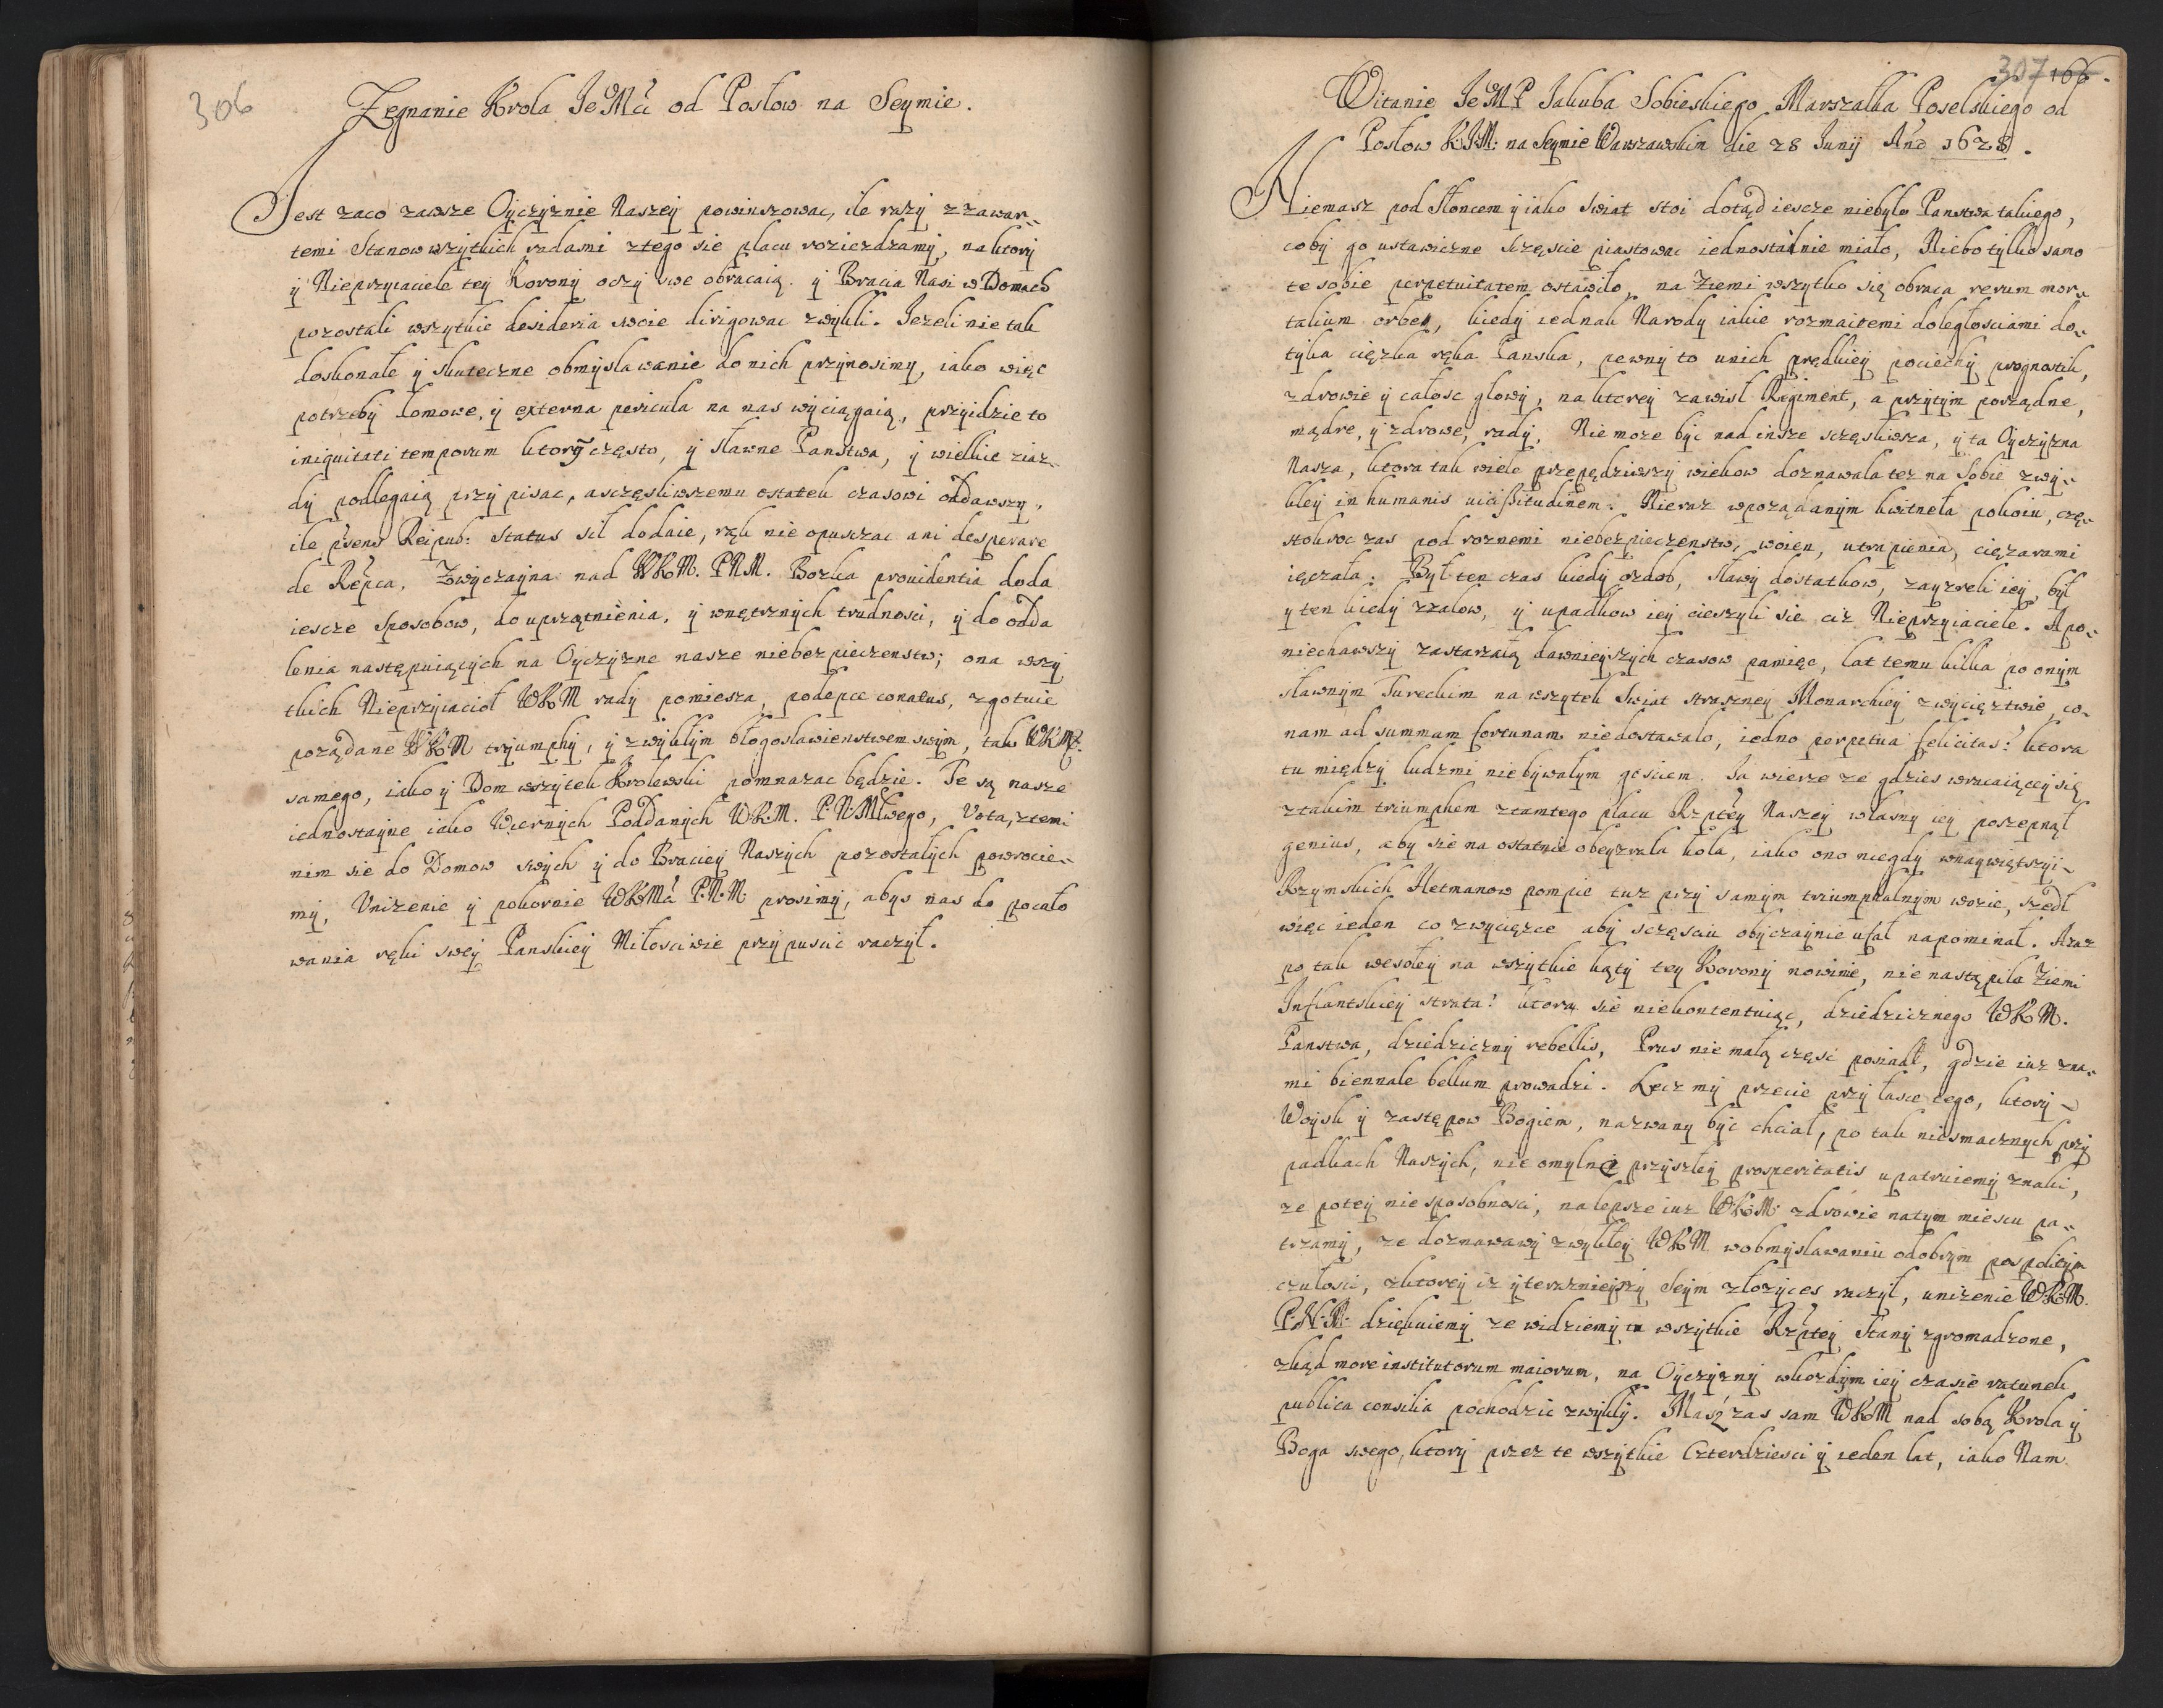 306
Zegnanie Krola JeMci od Posłow na Seymie.
Jest zaco zawsze Oyczyznie Naszey powinszowac, ile razy z zawar=
temi Stanow wszytkich radami z tego sie placu roziezdzamy, na ktory
y Nieprzyiaciele tey Korony oczy swe obracaią. y Bracia Nasi w Domach
pozostali wszytkie desideria swoie dirigowac zwykli. Jezeli nie tak
doskonałe y skuteczne obmyslawanie do nich przynosimy, iako więc
potrzeby domowe, y externa pericula na nas wyciągaią, przyidzie to
iniquitati temporum ktory często, y sławne Panstwa, y wielkie ziaz=
dy podlegaią przypisac, a sczęsliwszemu ostatek czasowi oddawszy,
ile prens Reipub: Status sił dodaie, rąk nie opusczac ani desperare
de Repca. Zwyczayna nad WKM. PNM. Bozka prouidentia doda
iescze sposobow, do uprzątnienia, y wnętrznych trudnosci, y do odda
lenia następuiących na Oyczyzne nasze niebezpieczenstw; ona wszy
tkich Nieprzyiacioł WKM rady pomiesza, podepce conatus, zgotuie
pożądane WKM tryumphy, y zwykłym błogosławienstwem swym, tak WKMć.
samego, iako y Dom wszytek Krolewski pomnazac będzie. Te są nasze
iednostayne iako Wiernych Poddanych WKM. P.N.Młwego, Vota, z temi
nim sie do Domow swych y do Braciey Naszych pozostałych powrocie=
my, Vnizenie y pokornie WKMci P.N.M. prosimy, abys nas do pocało
wania ręki swey Panskiey Miłosciwie przypuscic raczył.
307 166.
Witanie JeMP Jakuba Sobieskiego Marszałka Poselskiego od
Posłow K.J.M: na Seymie Warszawskim die 28 Junij Ano 1628.
Niemasz pod Słoncem y iako Swiat stoi dotąd iescze niebyło Panstwa takiego,
coby go ustawiczne sczęscie piastowac iednostainie miało, Niebo tylko samo
te sobie perpetuitatem ostawiło, na Ziemi wszytko się obraca rerum mor=
talium orbe, kiedy iednak Narody iakie rozmaitemi doległosciami do=
tyka cięzka ręka Panska, pewny to unich prędkiey pociechy prognostik,
zdrowie y całosc głowy, na ktorey zawisł Regiment, a przytym porządne,
mądre, y zdrowe, rady. Nie moze byc nad insze sczęsliwsza, y ta Oyczyzna
Nasza, ktora tak wiele przepędziwszy wiekow doznawała tez na Sobie zwy=
kłey in humanis uicißitudinem. Nieraz w pożądanym kwitneła pokoiu, czę=
stokroc zas pod roznemi niebezpieczenstw, woien, utrapienia, cięzarami
ięczała. Był ten czas kiedy ozdob, sławy dostatkow, zayzreli iey, był
y ten kiedy zzalow, y upadkow iey cieszyli sie ciż Nieprzyiaciele. A po=
niechawszy zastarzałą dawnieyszych czasow pamięc, lat temu kilka po onym
sławnym Tureckim na wszytek Swiat straszney Monarchiey zwycięztwie, co
nam ad summam fortunam niedostawało, iedno perpetua felicitas? ktora
tu między ludzmi niebywałym gosciem. Ja wierze ze gdzies wracaiącey się
z takim triumphem z tamtego placu Rzptey Naszey własny iey poszepnął
genius, aby sie na ostatnie obeyzrała koła, iako ono niegdy w naywiętszyi=
Rzymskich Hetmanow pompie tuz przy samym triumphalnym wozie, szedł
więc ieden co zwycięzce aby sczęsciu obyczaynie ufał napominał. Azaz
po tak wesołey na wszytkie kąty tey Korony nowinie, nie nastąpiła Ziemi
Inflantskiey strata? ktorą sie niekontentuiąc, dziedzicznego WKM.
Panstwa, dziedziczny rebellis, Prus nie małą częsc posiadł, gdzie iuz zna=
mi biennale bellum prowadzi. Lecz my przecie przy łasce tego, ktory
Woysk y zastępow Bogiem, nazwany byc chciał, po tak niesmacznych przy
padkach Naszych, nie omylne przyszłey prosperitatis upatruiemy znaki,
ze potey niesposobnosci, nalepsze iuz WKM: zdrowie natym miescu pa=
trzamy, ze doznawawy zwykłey WKM w obmyslawaniu odobrym pospolitym
czułosci, zktorey iz y teraznieyszy Seym złozyces raczył, unizenie WKM.
P.N.M. dziękuiemy ze widziemy tu wszytkie Rzptey Stany zgromadzone,
zkąd more institutorum maiorum, na Oyczyzny wkozdym iey czasie ratunek
publica consilia pochodzic zwykły. Masz zas sam WKM nad sobą Krola y
Boga swego, ktory przez te wszytkie Czterdziesci y ieden lat, iako Nam